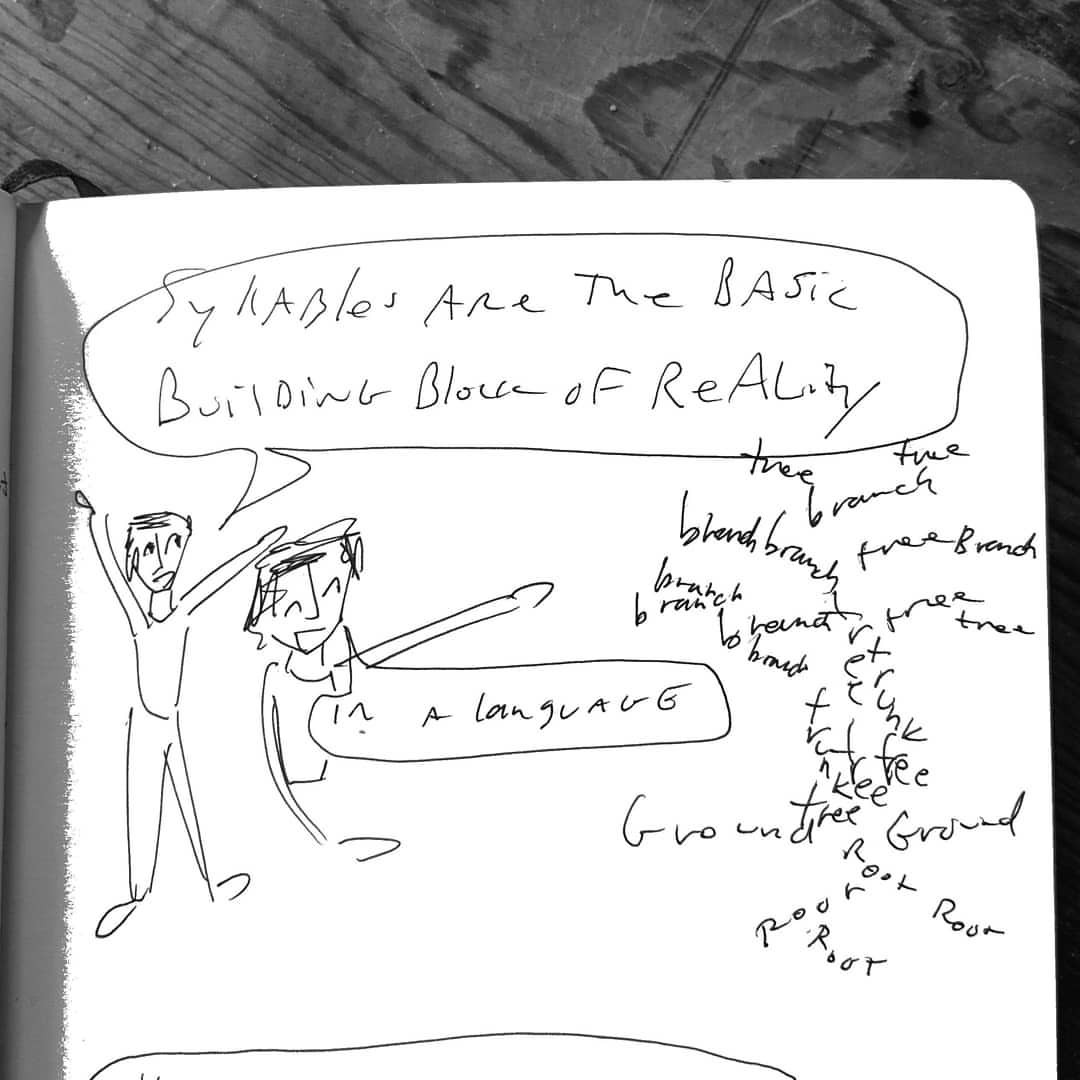 SyllABles Are The BASic
BuilDiNG Block oF ReALity
in A languAGE
tree
tree
branch
branch
branch
tree Branch
branch
branch
tree
tree
branch
branch
tree
trunk
tree
tree
Ground
Ground
Root
Root
Root
Root